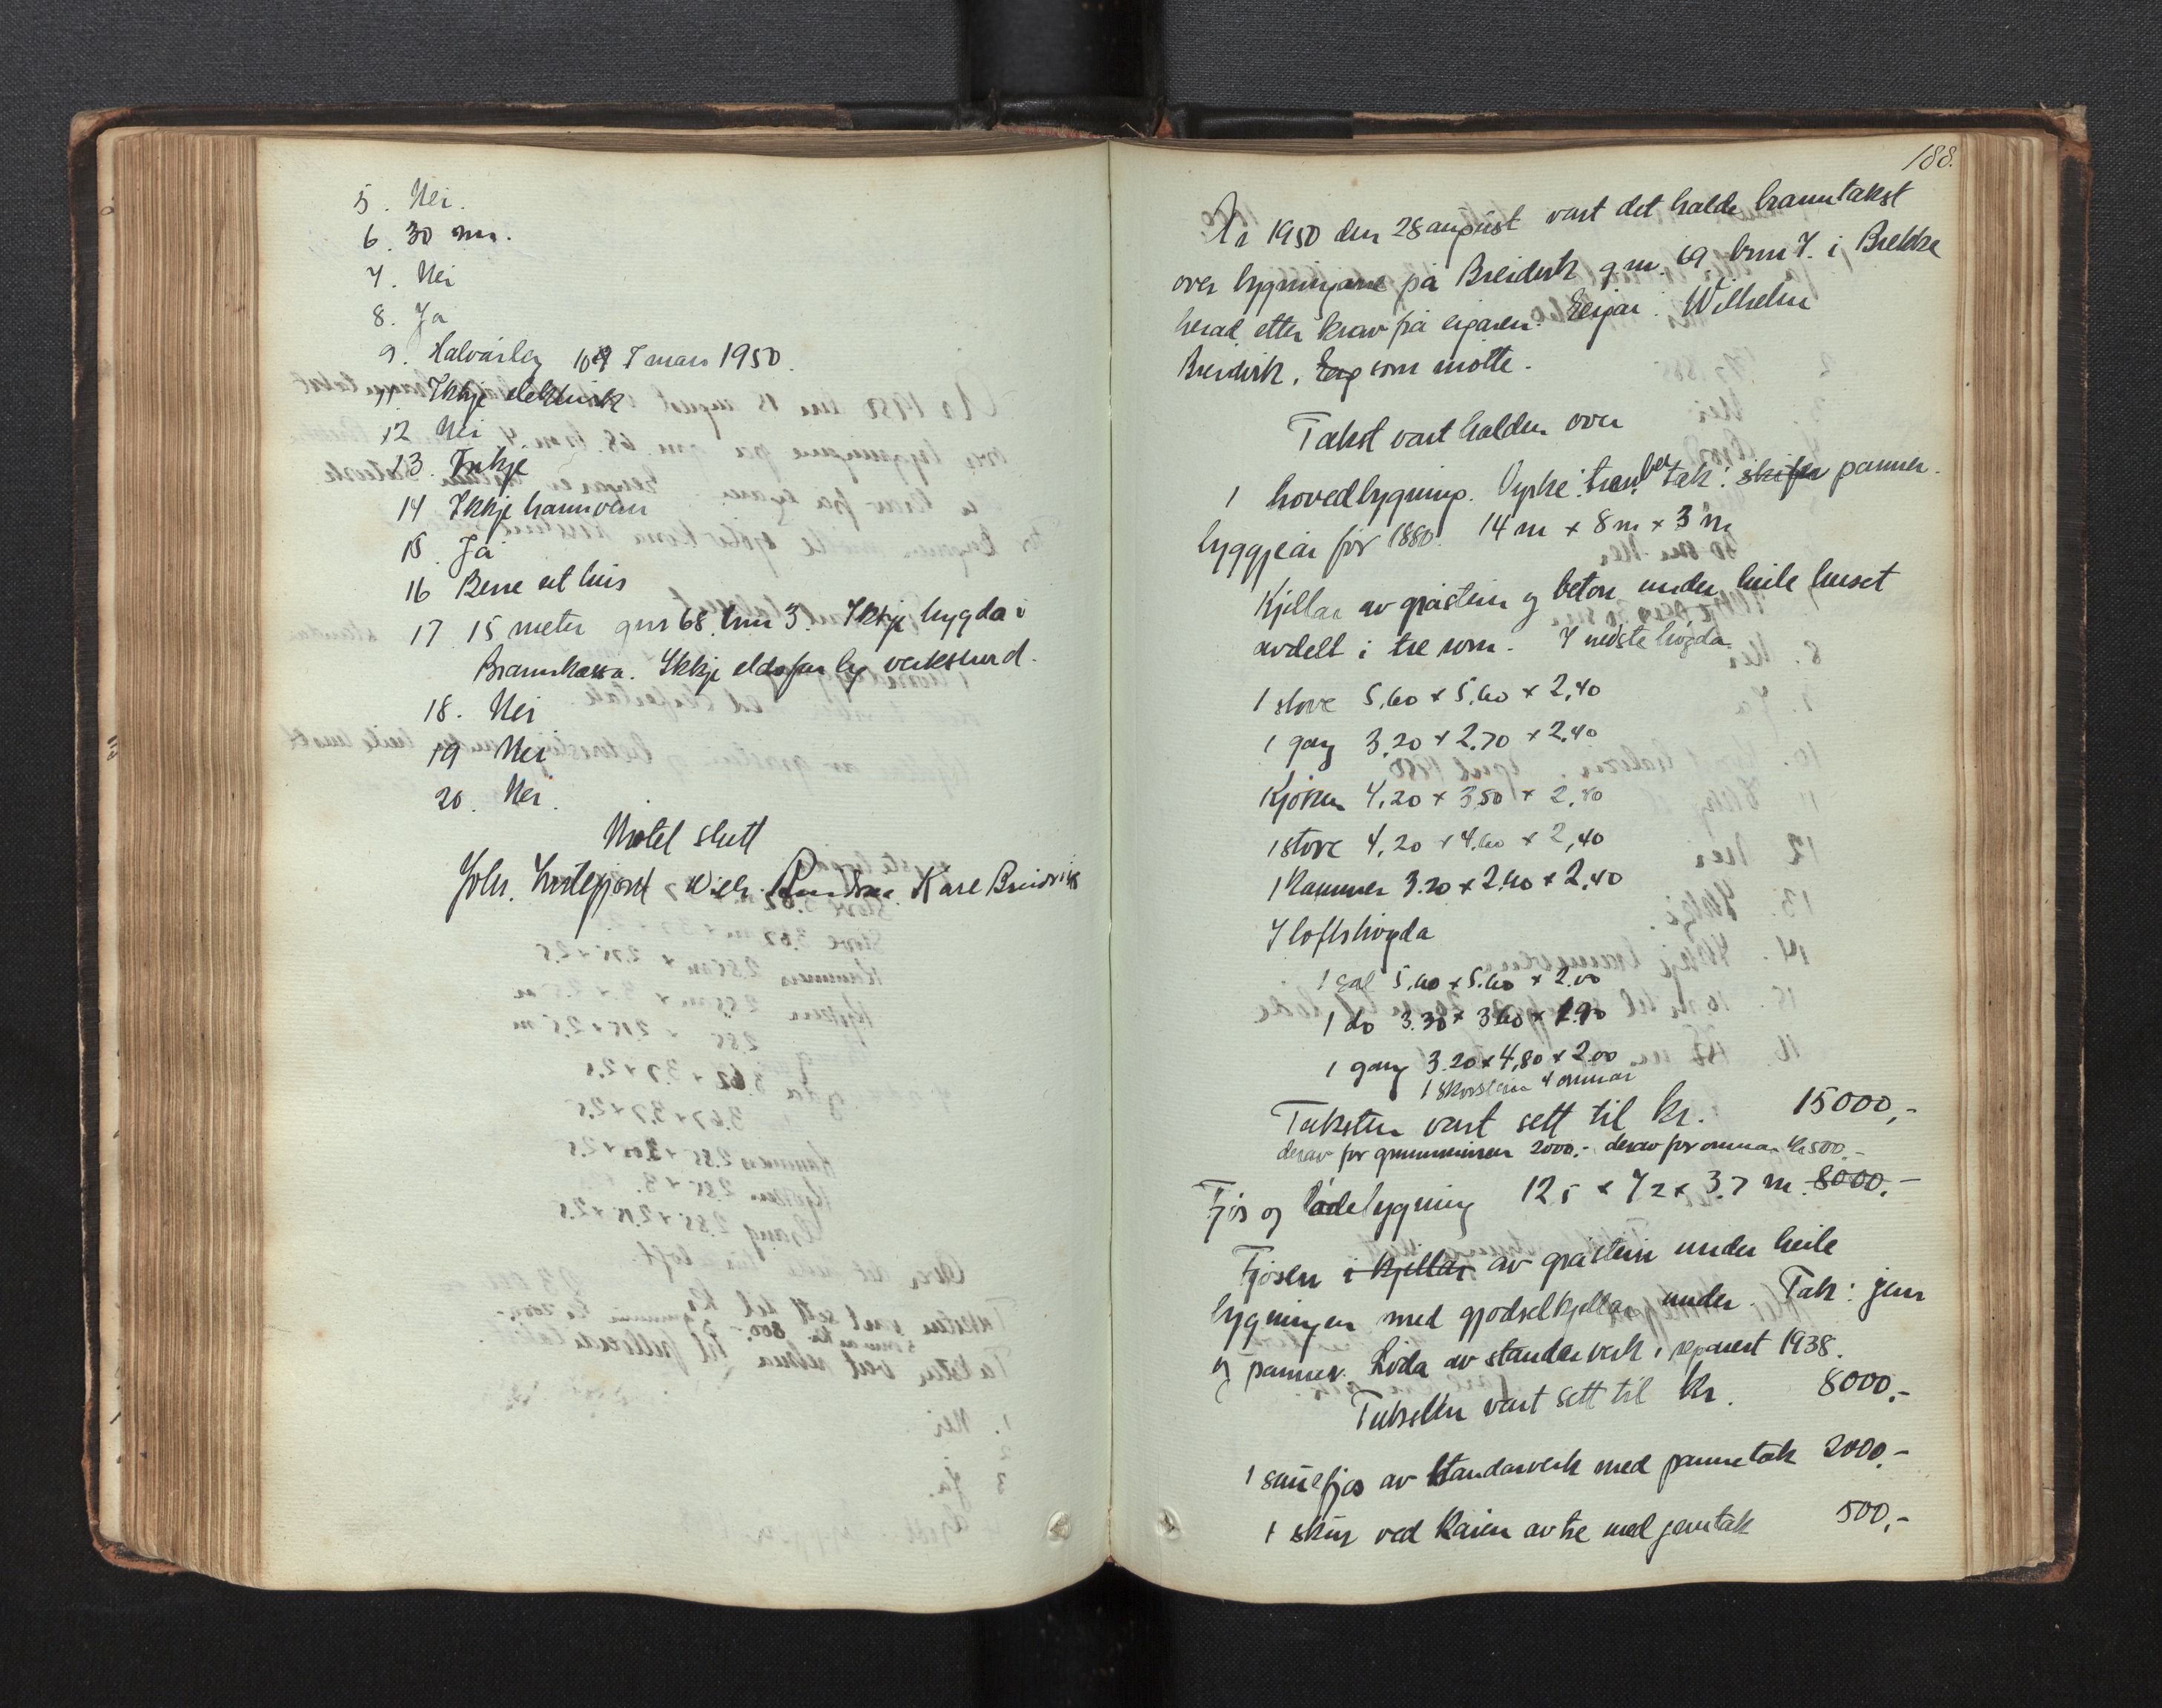 5. Nei.
6. 30 cm.
7. Nei
8. Ja
9. Halvårleg 10 7 mars 1950.
11 Ikkje elektrisk
12 Nei
13. Inkje
14 Ikkje brannvern
15. Ja
16 Berre eit hus
17 15 meter gnr 68. bnr 3. Ikkje bygda i
Brannkassa. Ikkje eldsfarleg verksemd.
18. Nei
19 Nei
20. Nei.
Motet slutt
Joh. Kåre Breidvik
188.
År 1950 den 28 august vart det halde branntakst
over bygningane på Breidvik gnr. 69 brnr 7. i Brekke
herad etter krav frå eigaren. Eigar: Wilhelm
Breidvik, som møtte.
Takst vart halden over
1 hovedbygning. Yrke: tak: skifer panner.
byggjeår før 1880. 14 m x 8 m x 3 m
Kjellar av gråstein og betong under heile huset
avdelt i tre rom. I nedste høgda.
1 stove 5,60 x 5,60 x 2,40
1 gang 3.20 x 2.70 x 2.40
Kjøken 4,20 x 3,50 x 2,40
1 stove 4,20 x 4.60 x 2,40
1 Kammer 3.20 x 2,40 x 2,40
I loftshøgda
1 sal 5,60 x 5.60 x 2.00
1 do 3.30 x 3.60 x 1.90
1 gang 3.20 x 4,80 x 2.00
1 skorstein 4 omnar
Taksten vart sett til kr. 15000,-
derav for grunnmuren 2000.- derav for omnar kr 500.-
Fjøs og lødebygning 12,5 x 7,2 x 3.7 m. 8000.-
Fjøsen i kjellar av gråstein under heile
bygningen med gjødselkjellar under. Tak: jern
og panner. Løda av standarverk, reparert 1938.
Taksten vart sett til kr. 8000.-
1 sauefjøs av standarverk med pannetak 2000.-
1 skur ved kaien av tre med jerntak 500,-